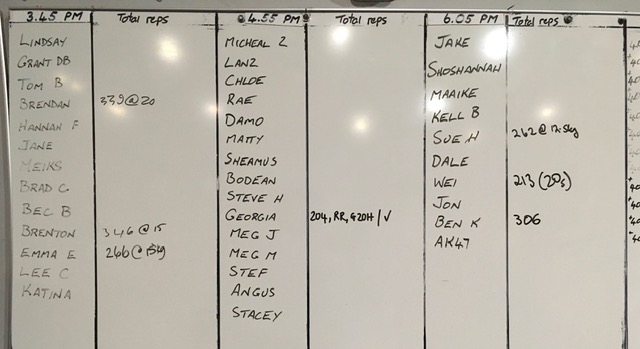 3.45 PM Total reps 4.55 PM Total reps 6.05 PM Total reps
LINDSAY
GRANT DB
TOM B
BRENDAN 339@20
HANNAH F
JANE
MEIKS
BRAD C.
BEC B
BRENTON 346@15
EMMA E 266@15kg
LEE C
KATINA
MICHEAL Z
LANZ
CHLOE
RAE
DAMO
MATTY
SHEAMUS
BODEAN
STEVE H
GEORGIA 204, RR, G20H/√
MEG J
MEG M
STEF
ANGUS
STACEY
JAKE
SHOSHANNAH
MAAIKE
KELL B
SUE H 262@
DALE
WEI 213 (20s)
JON
BEN K 306
AK47